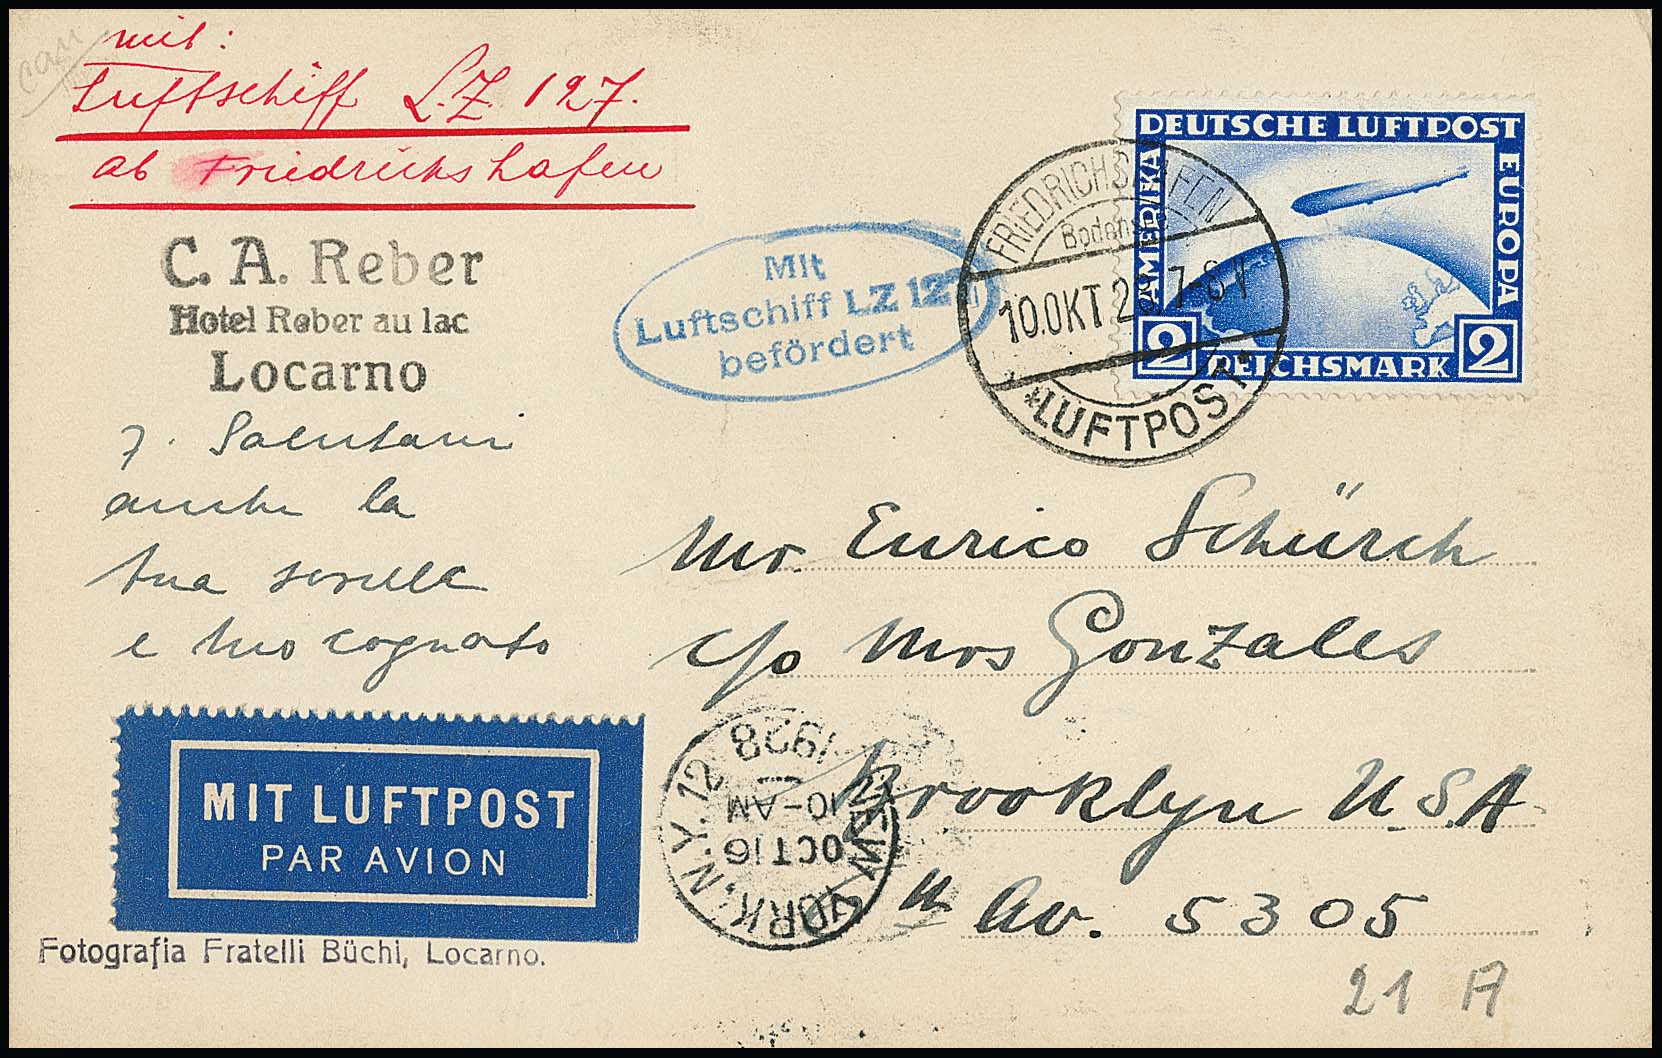 mit:
Luftschiff L.Z. 127.
ab Friedrichshafen
C. A. Reber
Hotel Reber au lac
Locarno
Salutami
anche la
tua sorella
e tuo cognato
MIT LUFTPOST
PAR AVION
Fotografia Fratelli Büchi, Locarno.
Mit
Luftschiff LZ 127
befördert
FRIEDRICHSHAFEN
Bodensee
10.OKT.28.7-8V
*LUFTPOST*
DEUTSCHE LUFTPOST
AMERIKA
EUROPA
2 REICHSMARK 2
Mr. Enrico Schürch
c/o Mrs Gonzales
Brooklyn U.S.A
Av. 5305
NEW YORK, N.Y. 12
OCT 16
10-AM
1928
21 A